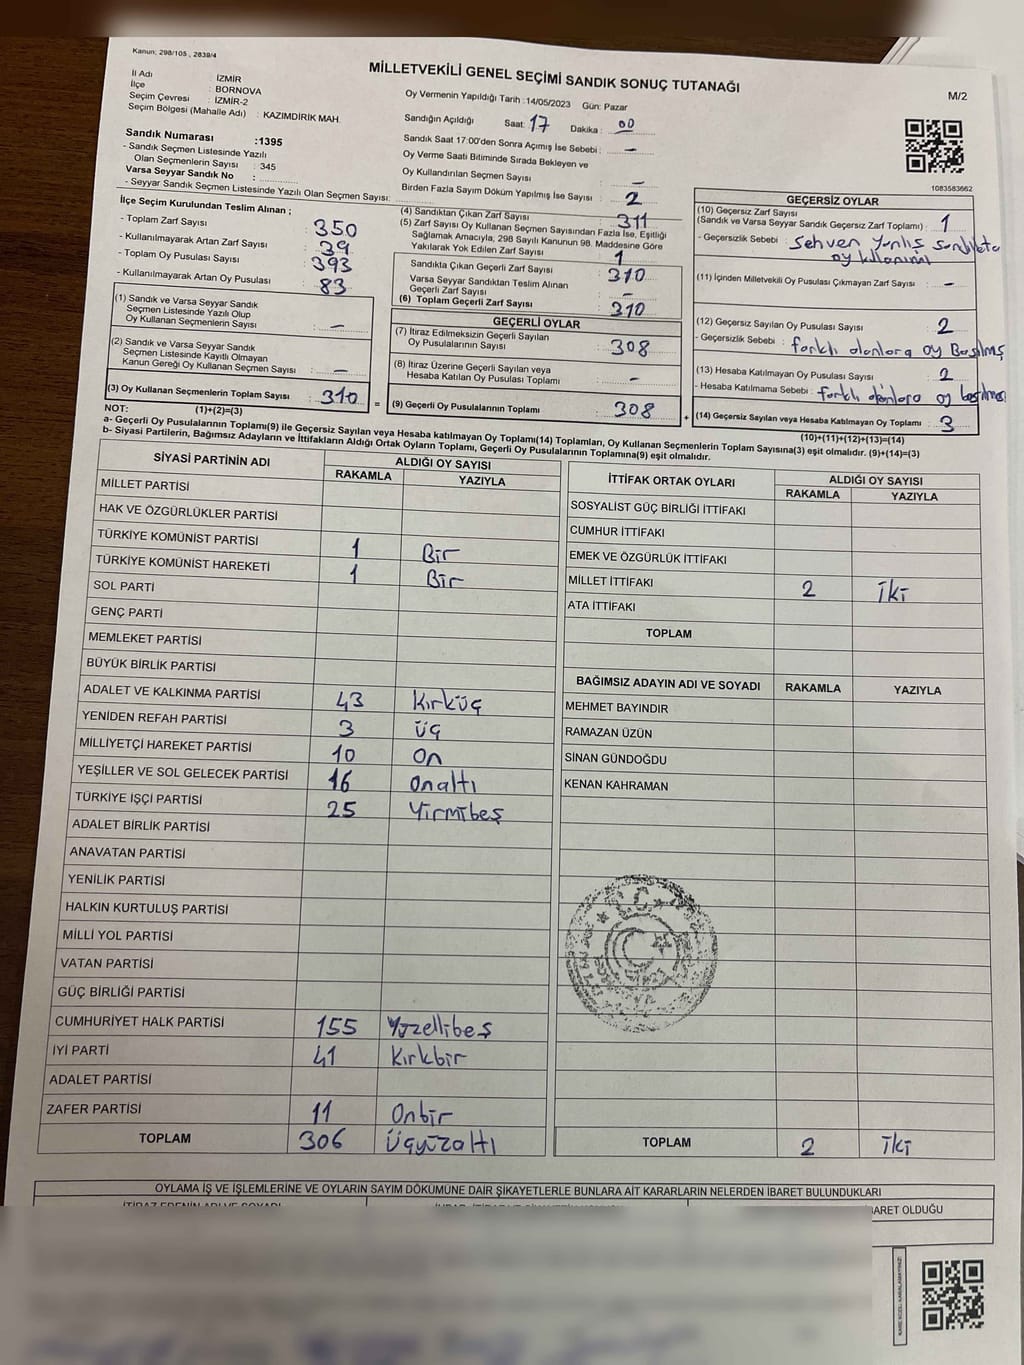 Kanun: 298/105 , 2839/4
MİLLETVEKİLİ GENEL SEÇİMİ SANDIK SONUÇ TUTANAĞI
M/2
İl Adı : İZMİR
İlçe : BORNOVA
Seçim Çevresi : İZMİR-2
Seçim Bölgesi (Mahalle Adı) : KAZIMDİRİK MAH.
Sandık Numarası :1395
- Sandık Seçmen Listesinde Yazılı
Olan Seçmenlerin Sayısı : 345
Varsa Seyyar Sandık No :
- Seyyar Sandık Seçmen Listesinde Yazılı Olan Seçmen Sayısı:
Oy Vermenin Yapıldığı Tarih :14/05/2023 Gün: Pazar
Sandığın Açıldığı Saat: 17 Dakika : 00
Sandık Saat 17:00'den Sonra Açımış İse Sebebi : -
Oy Verme Saati Bitiminde Sırada Bekleyen ve
Oy Kullandırılan Seçmen Sayısı : -
Birden Fazla Sayım Döküm Yapılmış İse Sayısı : 2
1083583662
İlçe Seçim Kurulundan Teslim Alınan ;
- Toplam Zarf Sayısı : 350
- Kullanılmayarak Artan Zarf Sayısı : 39
- Toplam Oy Pusulası Sayısı : 393
- Kullanılmayarak Artan Oy Pusulası : 83
(1) Sandık ve Varsa Seyyar Sandık
Seçmen Listesinde Yazılı Olup
Oy Kullanan Seçmenlerin Sayısı : -
(2) Sandık ve Varsa Seyyar Sandık
Seçmen Listesinde Kayıtlı Olmayan
Kanun Gereği Oy Kullanan Seçmen Sayısı : -
(3) Oy Kullanan Seçmenlerin Toplam Sayısı : 310
(1)+(2)=(3)
(4) Sandıktan Çıkan Zarf Sayısı : 311
(5) Zarf Sayısı Oy Kullanan Seçmen Sayısından Fazla İse, Eşitliği
Sağlamak Amacıyla, 298 Sayılı Kanunun 98. Maddesine Göre
Yakılarak Yok Edilen Zarf Sayısı : 1
Sandıkta Çıkan Geçerli Zarf Sayısı : 310
Varsa Seyyar Sandıktan Teslim Alınan
Geçerli Zarf Sayısı : -
(6) Toplam Geçerli Zarf Sayısı : 310
GEÇERLİ OYLAR
(7) İtiraz Edilmeksizin Geçerli Sayılan
Oy Pusulalarının Sayısı : 308
(8) İtiraz Üzerine Geçerli Sayılan veya
Hesaba Katılan Oy Pusulası Toplamı : -
= (9) Geçerli Oy Pusulalarının Toplamı : 308 +
GEÇERSİZ OYLAR
(10) Geçersiz Zarf Sayısı
(Sandık ve Varsa Seyyar Sandık Geçersiz Zarf Toplamı) : 1
- Geçersizlik Sebebi : Sehven yanlış sandıkta
oy kullanımı
(11) İçinden Milletvekili Oy Pusulası Çıkmayan Zarf Sayısı : -
(12) Geçersiz Sayılan Oy Pusulası Sayısı : 2
- Geçersizlik Sebebi : farklı alanlara oy Basılmış
(13) Hesaba Katılmayan Oy Pusulası Sayısı : 2
- Hesaba Katılmama Sebebi : farklı alanlara oy basılması
(14) Geçersiz Sayılan veya Hesaba Katılmayan Oy Toplamı : 3
(10)+(11)+(12)+(13)=(14)
NOT:
a- Geçerli Oy Pusulalarının Toplamı(9) ile Geçersiz Sayılan veya Hesaba katılmayan Oy Toplamı(14) Toplamları, Oy Kullanan Seçmenlerin Toplam Sayısına(3) eşit olmalıdır. (9)+(14)=(3)
b- Siyasi Partilerin, Bağımsız Adayların ve İttifakların Aldığı Ortak Oyların Toplamı, Geçerli Oy Pusulalarının Toplamına(9) eşit olmalıdır.
SİYASİ PARTİNİN ADI ALDIĞI OY SAYISI
RAKAMLA YAZIYLA
MİLLET PARTİSİ
HAK VE ÖZGÜRLÜKLER PARTİSİ
TÜRKİYE KOMÜNİST PARTİSİ 1 Bir
TÜRKİYE KOMÜNİST HAREKETİ 1 Bir
SOL PARTİ
GENÇ PARTİ
MEMLEKET PARTİSİ
BÜYÜK BİRLİK PARTİSİ
ADALET VE KALKINMA PARTİSİ 43 Kırküç
YENİDEN REFAH PARTİSİ 3 üç
MİLLİYETÇİ HAREKET PARTİSİ 10 On
YEŞİLLER VE SOL GELECEK PARTİSİ 16 onaltı
TÜRKİYE İŞÇİ PARTİSİ 25 Yirmibeş
ADALET BİRLİK PARTİSİ
ANAVATAN PARTİSİ
YENİLİK PARTİSİ
HALKIN KURTULUŞ PARTİSİ
MİLLİ YOL PARTİSİ
VATAN PARTİSİ
GÜÇ BİRLİĞİ PARTİSİ
CUMHURİYET HALK PARTİSİ 155 Yüzellibeş
İYİ PARTİ 41 Kırkbir
ADALET PARTİSİ
ZAFER PARTİSİ 11 Onbir
TOPLAM 306 Üçyüzaltı
İTTİFAK ORTAK OYLARI ALDIĞI OY SAYISI
RAKAMLA YAZIYLA
SOSYALİST GÜÇ BİRLİĞİ İTTİFAKI
CUMHUR İTTİFAKI
EMEK VE ÖZGÜRLÜK İTTİFAKI
MİLLET İTTİFAKI 2 iki
ATA İTTİFAKI
TOPLAM
BAĞIMSIZ ADAYIN ADI VE SOYADI RAKAMLA YAZIYLA
MEHMET BAYINDIR
RAMAZAN ÜZÜN
SİNAN GÜNDOĞDU
KENAN KAHRAMAN
T.C.
TOPLAM 2 iki
OYLAMA İŞ VE İŞLEMLERİNE VE OYLARIN SAYIM DÖKÜMÜNE DAİR ŞİKAYETLERLE BUNLARA AİT KARARLARIN NELERDEN İBARET BULUNDUKLARI
İTİRAZ EDENİN ADI VE SOYADI
İBARET OLDUĞU